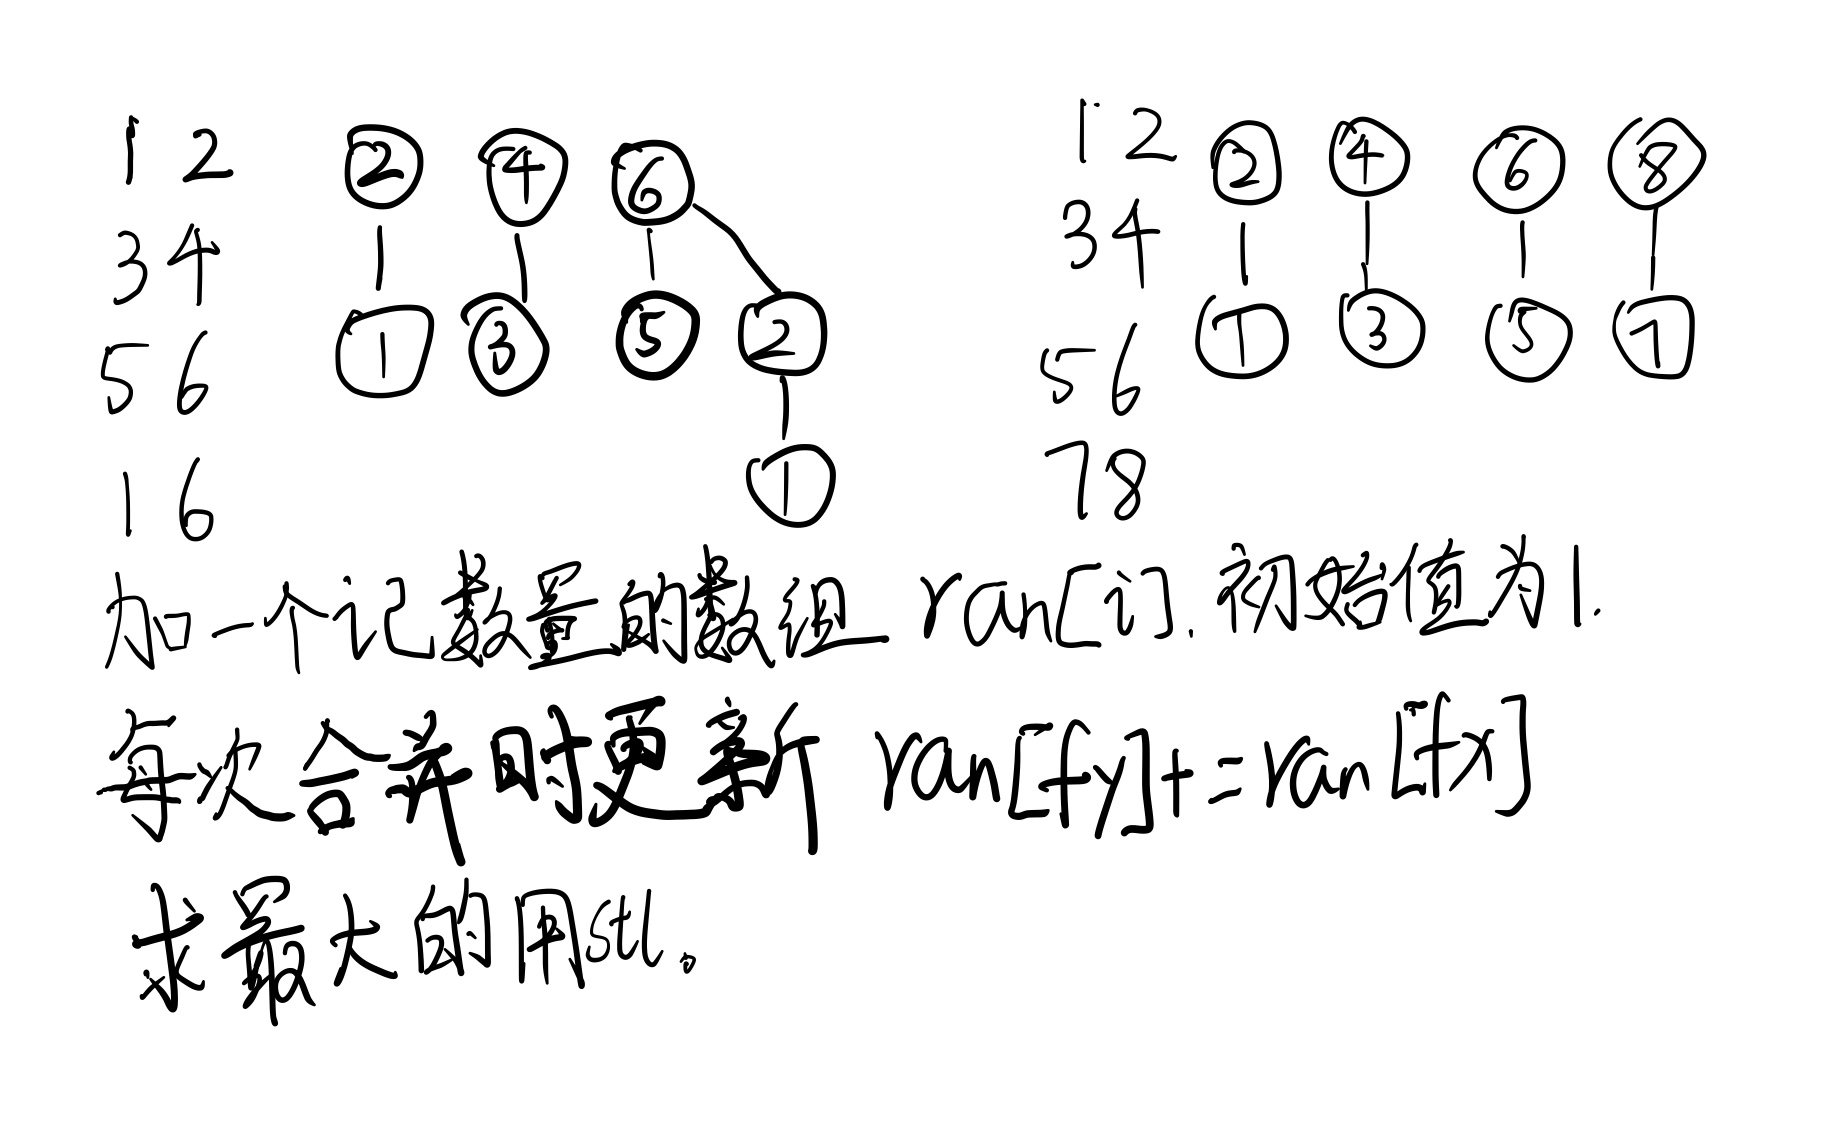 1 2
3 4
5 6
1 6
② ④ ⑥
① ③ ⑤ ②
①
1 2
3 4
5 6
7 8
② ④ ⑥ ⑧
① ③ ⑤ ⑦
加一个记数量的数组 ran[i]. 初始值为1.
每次合并时更新 ran[fy]+=ran[fx]
求最大的用stl。